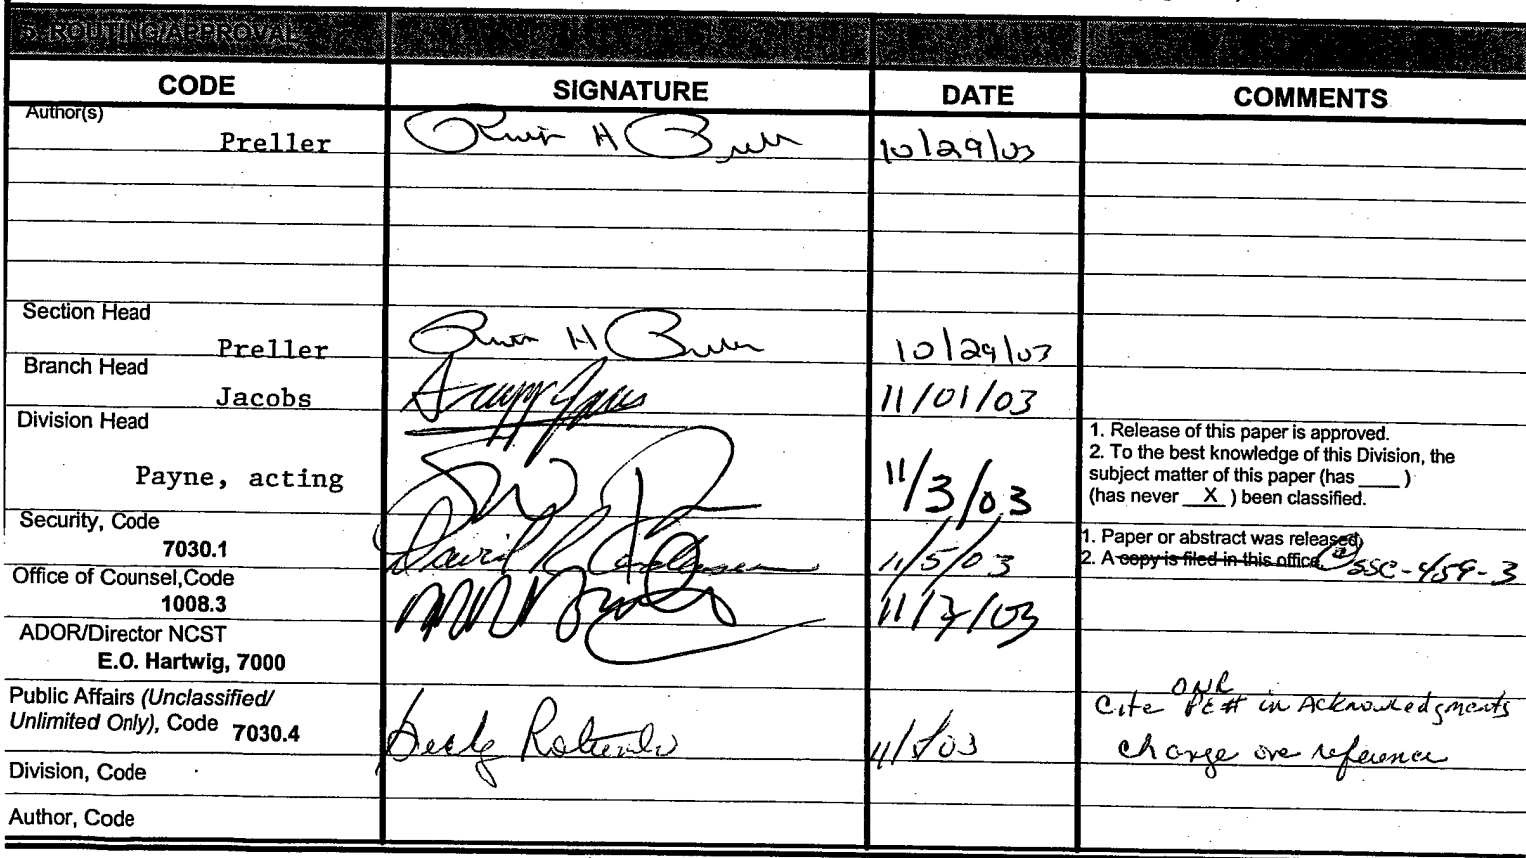 5. ROUTING/APPROVAL
CODE SIGNATURE DATE COMMENTS
Author(s)
Preller 10/29/03
Section Head
Preller 10/29/03
Branch Head
Jacobs 11/01/03
Division Head
Payne, acting 11/3/03
1. Release of this paper is approved.
2. To the best knowledge of this Division, the
subject matter of this paper (has ____ )
(has never __X__ ) been classified.
Security, Code
7030.1 David 11/5/03
1. Paper or abstract was released.
2. A copy is filed in this office SSC-459-3
Office of Counsel,Code
1008.3
ADOR/Director NCST
E.O. Hartwig, 7000
Public Affairs (Unclassified/
Unlimited Only), Code 7030.4
ONR
Cite PE# in Acknowledgments
change one reference
Division, Code
Author, Code